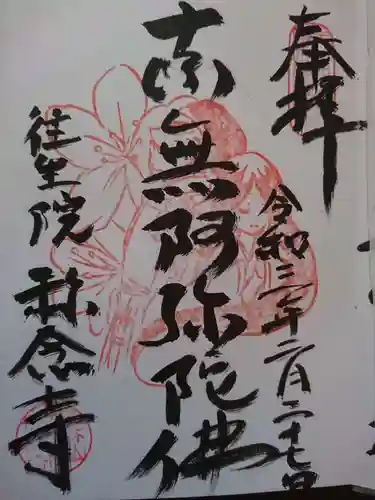 奉拝
令和三年二月二十七日
南無阿弥陀佛
往生院
称念寺